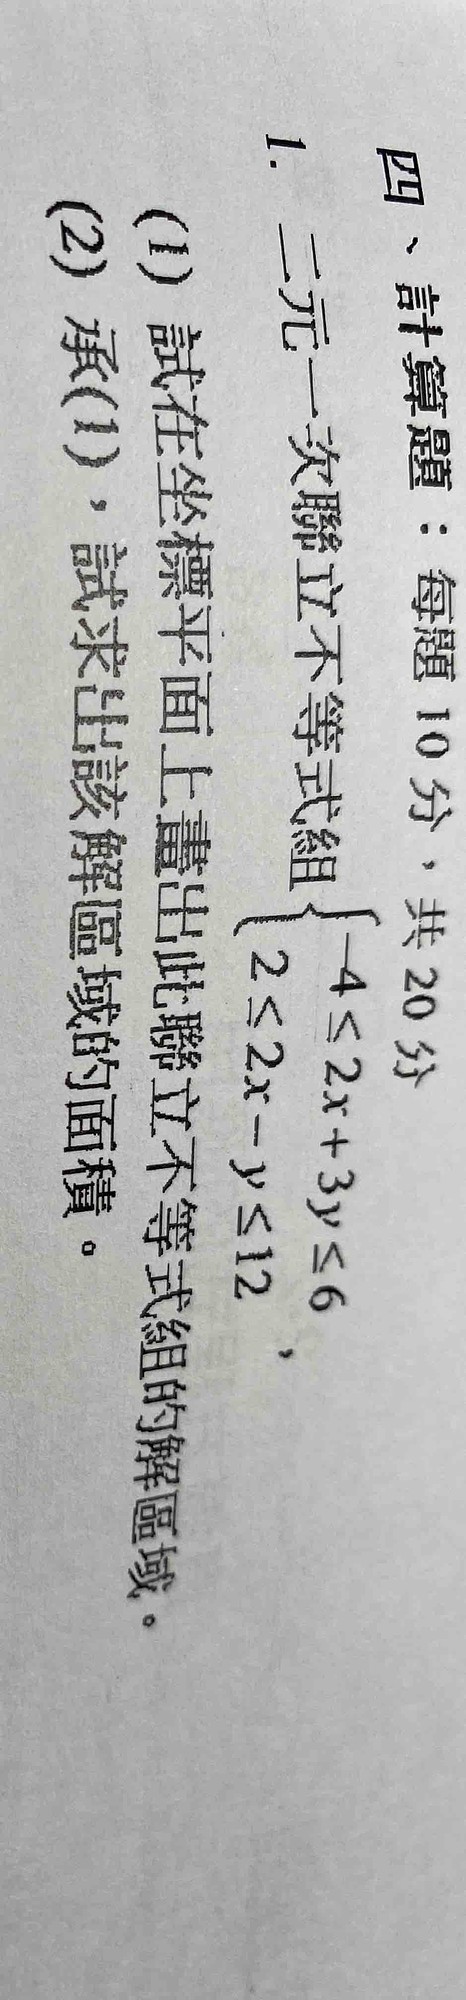 四、計算題：每題 10 分，共 20 分
1. 二元一次聯立不等式組{-4≤2x+3y≤6
2≤2x-y≤12 ，
(1) 試在坐標平面上畫出此聯立不等式組的解區域。
(2) 承(1)，試求出該解區域的面積。